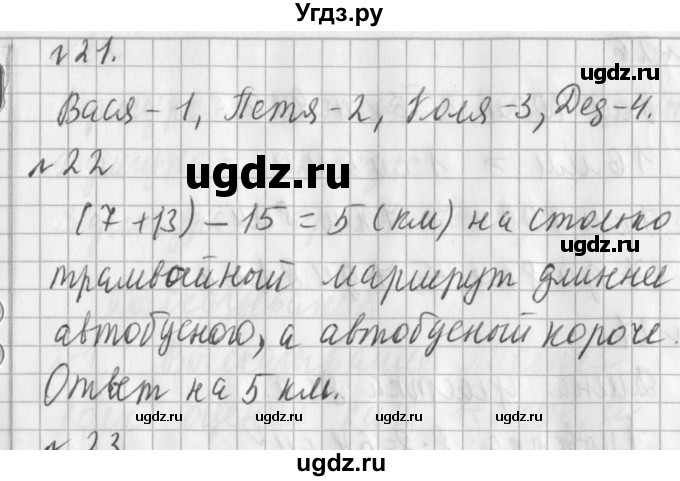 Угдз.ру
№21.
ugdz.ru
Вася-1, Петя-2, Коля-3, Дед-4.
№22
ugdz.ru
ugdz.ru
(7+13)-15=5(км) на столько
ugdz.ru
трамвайный маршрут длиннее
автобусного, а автобусный короче.
ugdz.ru
Ответ на 5 км.
ugdz.ru ugdz.ru
№23
ugdz.ru